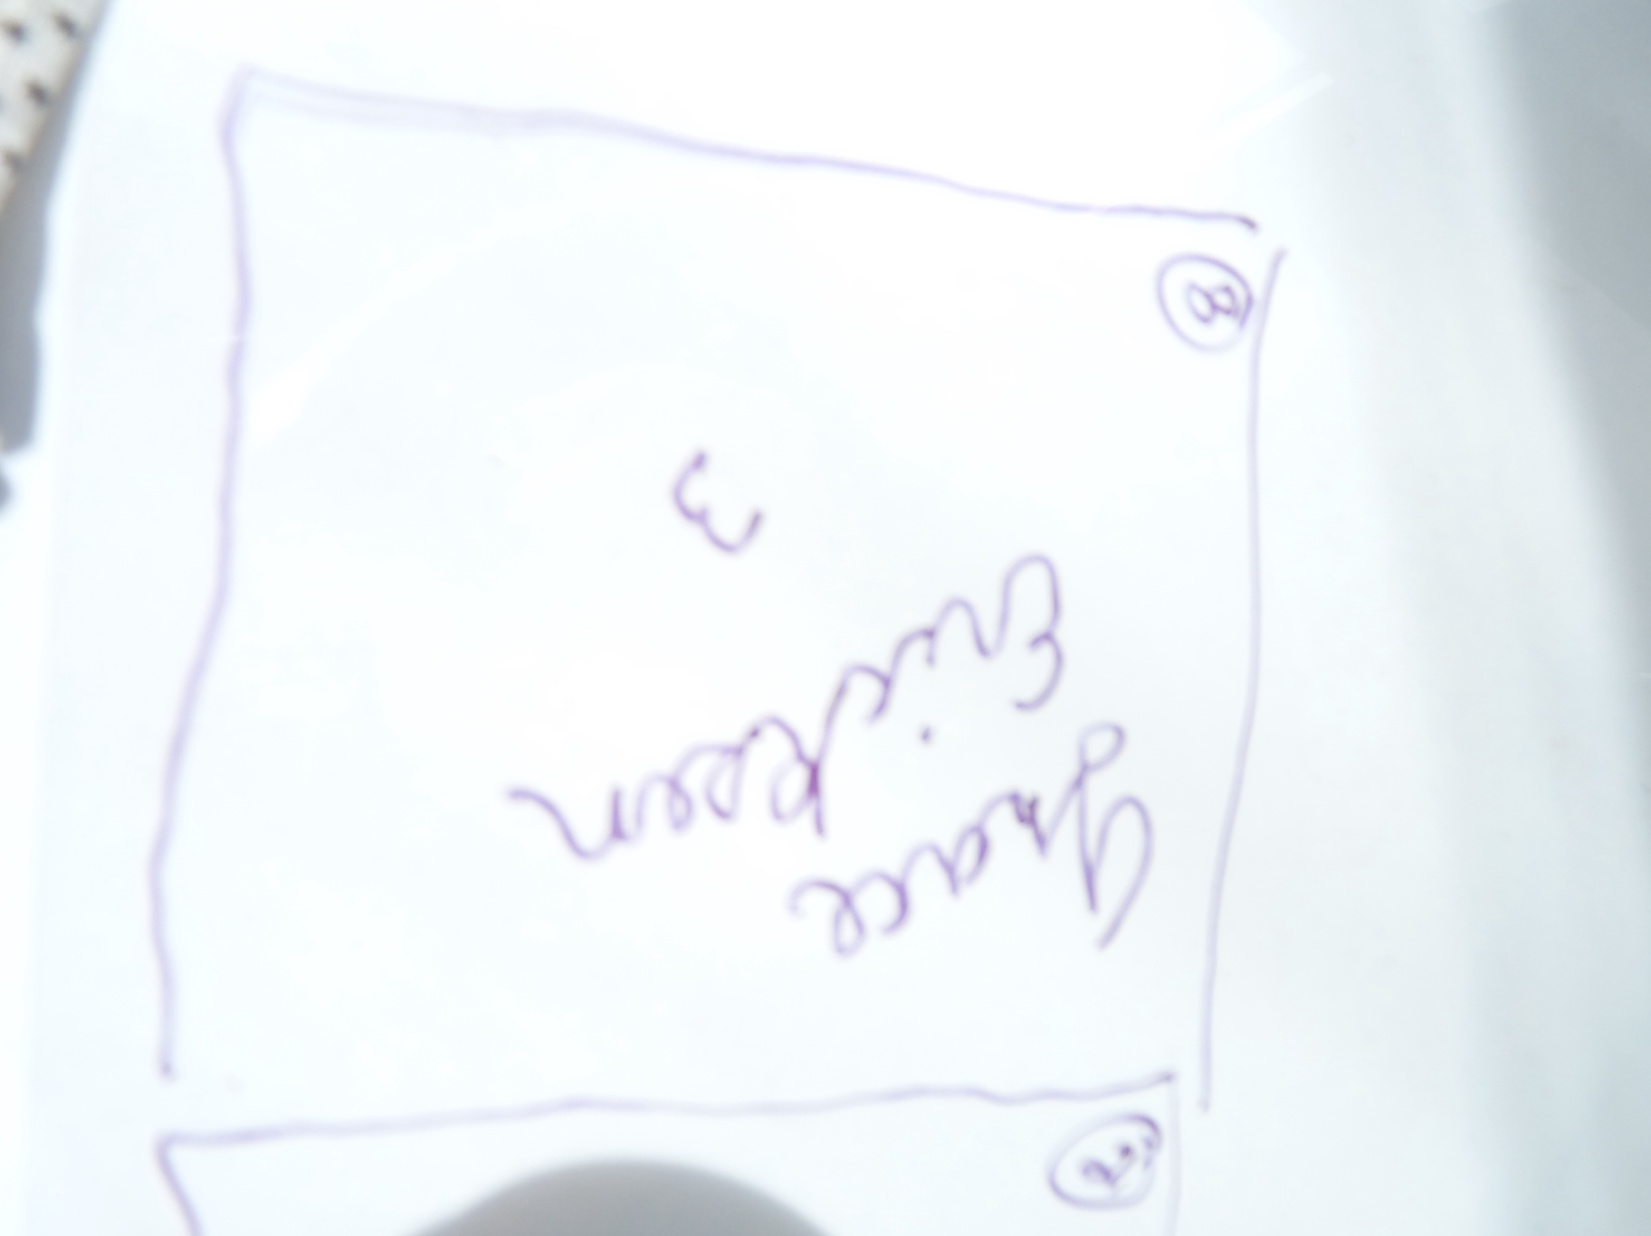 Grace
Erickson
3